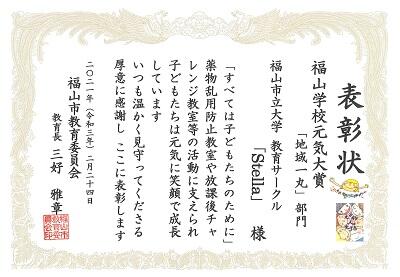 表彰状
福山学校元気大賞
「地域一丸」部門
福山市立大学 教育サークル
「Stella」 様
「すべては子どもたちのために」
薬物乱用防止教室や放課後チャ
レンジ教室等の活動に支えられ
子どもたちは元気に笑顔で成長
しています
いつも温かく見守ってくださる
厚意に感謝し ここに表彰します
二〇二一年（令和三年）二月二十四日
福山市教育委員会
教育長 三好 雅章